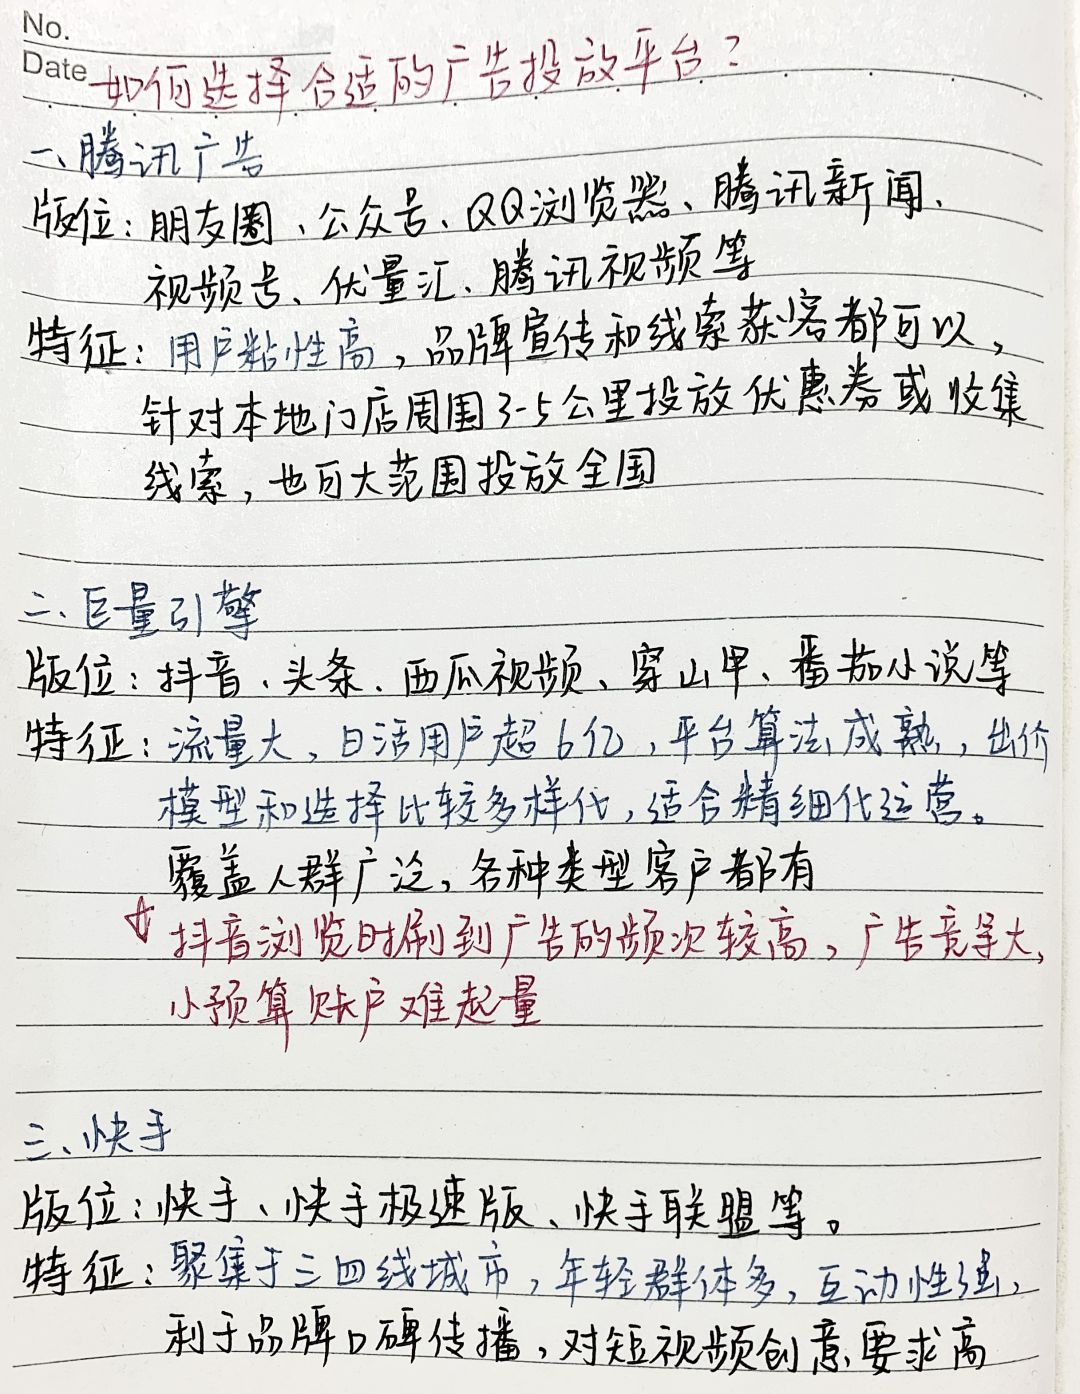 No.
Date
如何选择合适的广告投放平台?
一、腾讯广告
版位:朋友圈、公众号、QQ浏览器、腾讯新闻、
视频号、优量汇、腾讯视频等
特征:用户粘性高,品牌宣传和线索获客都可以,
针对本地门店周围3-5公里投放优惠券或收集
线索,也可大范围投放全国
二、巨量引擎
版位:抖音、头条、西瓜视频、穿山甲、番茄小说等
特征:流量大,日活用户超6亿,平台算法成熟,出价
模型和选择比较多样化,适合精细化运营。
覆盖人群广泛,各种类型客户都有
抖音浏览时刷到广告的频次较高,广告竞争大,
小预算账户难起量
三、快手
版位:快手、快手极速版、快手联盟等。
特征:聚集于三四线城市,年轻群体多,互动性强,
利于品牌口碑传播,对短视频创意要求高